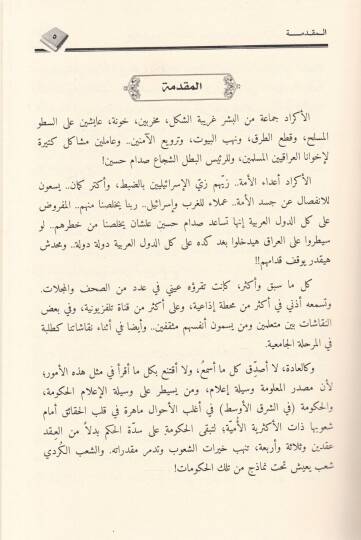 المقدمـــة
٥
المقدمة
الأكراد جماعة من البشر غريبة الشكل، مخربين، خونة، عايشين على السطو
المسلح، وقطع الطرق، ونهب البيوت، وترويع الآمنين.. وعاملين مشاكل كتيرة
لإخوانا العراقيين المسلمين، وللرئيس البطل الشجاع صدام حسين!
الأكراد أعداء الأمة.. زيّهم زيّ الإسرائيليين بالضبط، وأكتر كمان.. يسعون
للانفصال عن جسد الأمة.. عملاء للغرب وإسرائيل.. ربنا يخلصنا منهم.. المفروض
على كل الدول العربية إنها تساعد صدام حسين علشان يخلصنا من خطرهم.. لو
سيطروا على العراق هيدخلوا بعد كده على كل الدول العربية دولة دولة.. ومحدش
هيقدر يوقف قدامهم!!
كل ما سبق وأكثر، كانت تقرؤه عيني في عدد من الصحف والمجلات.
وتسمعه أذني في أكثر من محطة إذاعية، وعلى أكثر من قناة تلفزيونية، وفي بعض
النقاشات بين متعلمين ومن يسمون أنفسهم مثقفين.. وأيضا في أثناء نقاشاتنا كطلبة
في المرحلة الجامعية.
وكالعادة، لا أصدِّق كل ما أسمعُ، ولا أقتنع بكل ما أقرأ في مثل هذه الأمور؛
لأن مصدر المعلومة وسيلة إعلام، ومن يسيطر على وسيلة الإعلام الحكومة،
والحكومة (في الشرق الأوسط) في أغلب الأحوال ماهرة في قلب الحقائق أمام
شعوبها ذات الأكثرية الأُميَّة؛ لتبقى الحكومة على سدّة الحكم بدلاً من العقد
عقدين وثلاثة وأربعة، تنهب خيرات الشعوب وتدمر مقدراته. والشعب الكُردي
شعب يعيش تحت نماذج من تلك الحكومات!